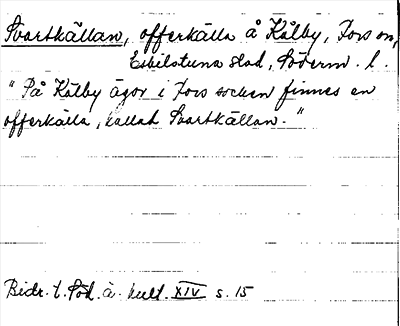 Svartkällan, offerkälla å Kälby, Fors sn,
Eskilstuna stad, Söderm. l.
"På Kälby ägor i Fors socken finnes en
offerkälla, kallad Svartkällan."
Bidr. t. Söd. ä. kult. XIV s. 15